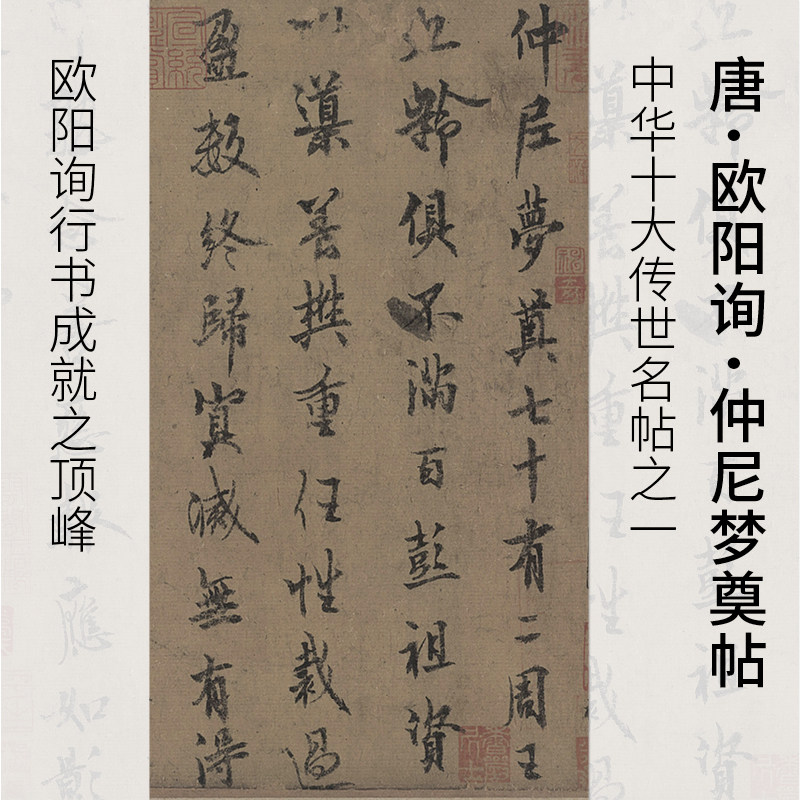 唐·欧阳询·仲尼梦奠帖
中华十大传世名帖之一
仲尼夢奠七十有二周王
九齡俱不滿百彭祖資
以導養樊重任性裁過
盈數終歸冥滅無有得
欧阳询行书成就之顶峰
應如影